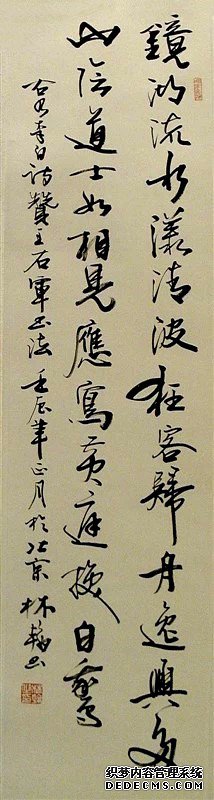 鏡湖流水漾清波狂客歸舟逸興多
山陰道士如相見應寫黃庭換白鵝
右李白詩贊王右軍书法 壬辰年正月於北京 林书
织梦内容管理系统
DEDECMS.COM